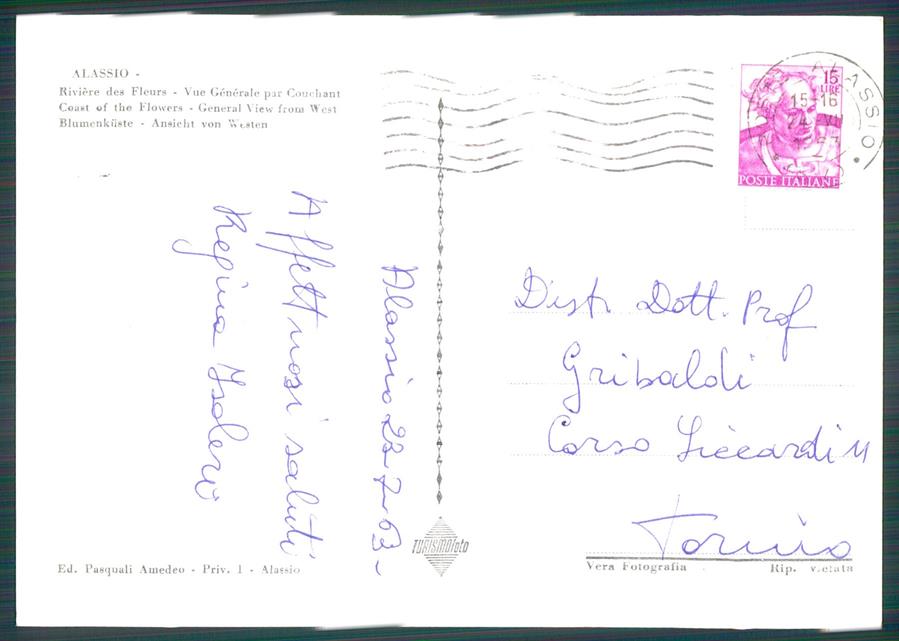 ALASSIO -
Rivière des Fleurs - Vue Générale par Couchant
Coast of the Flowers - General View from West
Blumenküste - Ansicht von Westen
15
LIRE
POSTE ITALIANE
ALASSIO
15-16
Alassio 23-7-63-
Affettuosi saluti
Regina
Distr Dott. Prof
Gribaldi
Corso Siccardi 11
Torino
TURISMOfoto
Ed. Pasquali Amedeo - Priv. 1 - Alassio
Vera Fotografia Rip. vietata